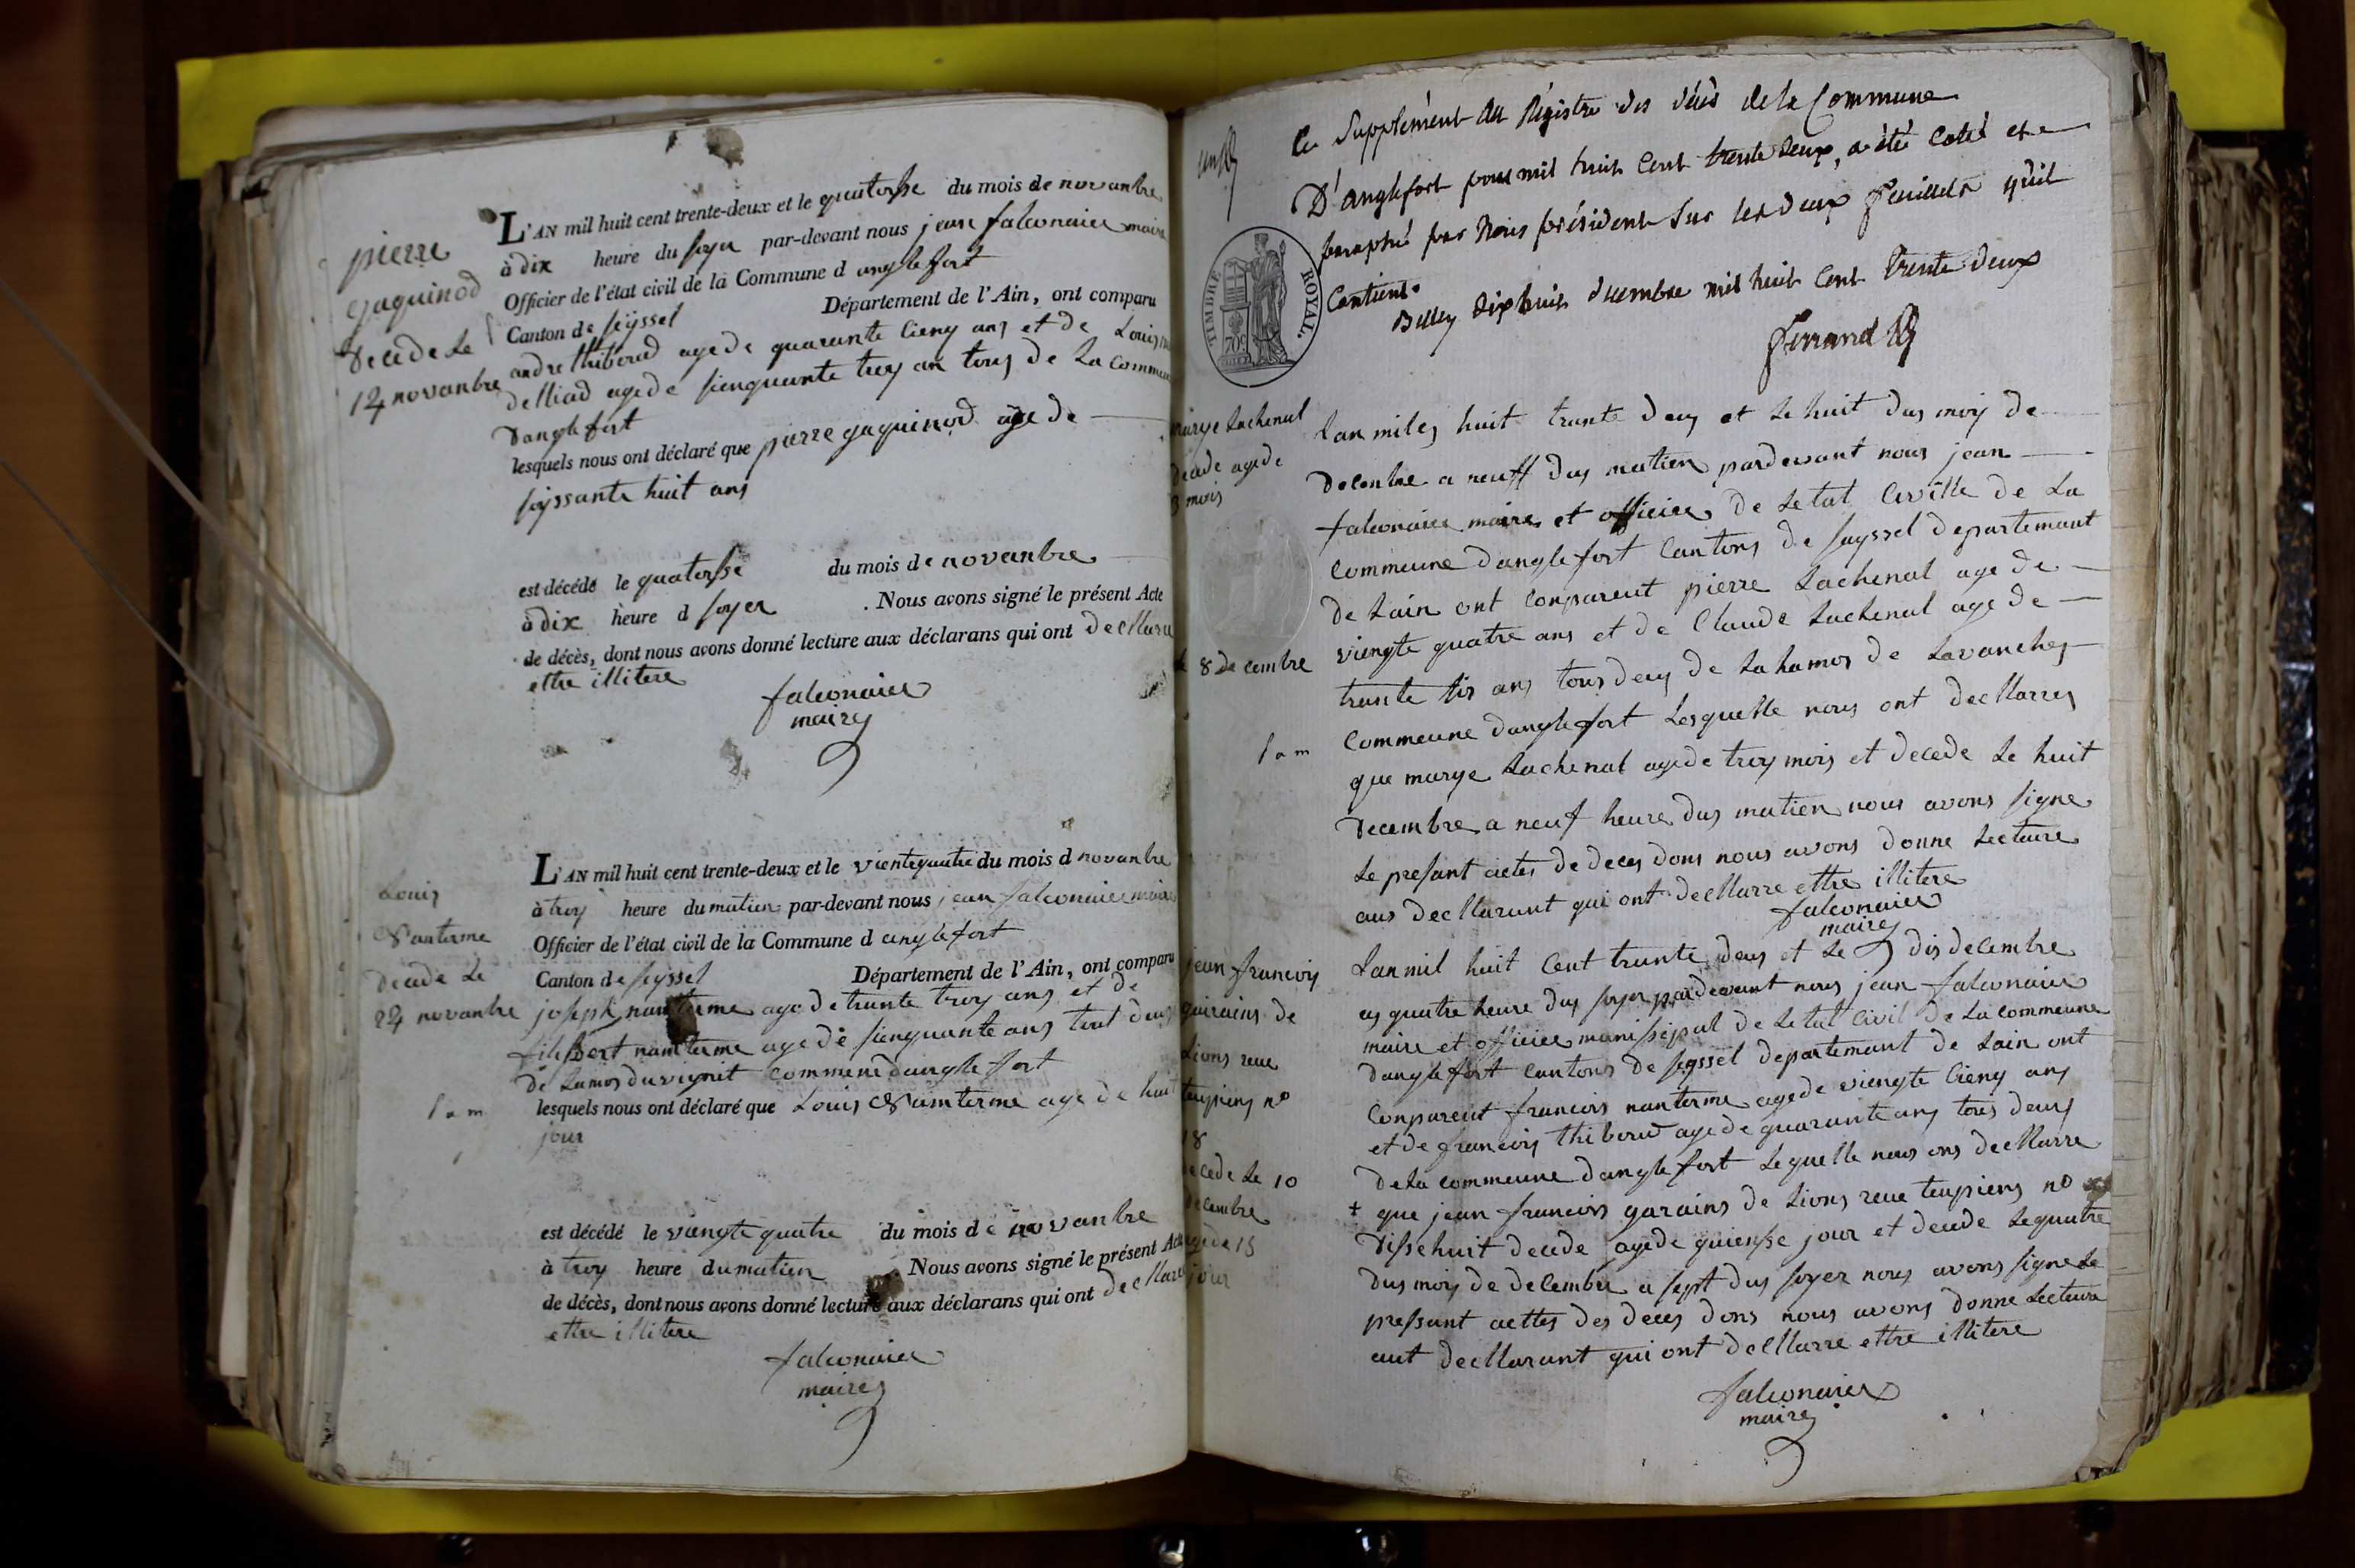 pierre
gaquinod
decede le
14 novanbre
L'AN mil huit cent trente-deux et le quatorse du mois de novanbre
à dix heure du soyer par-devant nous jean falconnier maire
Officier de l'état civil de la Commune d anglefort
Canton de seyssel Département de l'Ain, ont comparu
andre thiboud age de quarante cienq ans et de Louis
delliad age de sienquante troy an tous de la commeune
danglefort
lesquels nous ont déclaré que pierre gaquinod age de
soyssante huit ans
est décédé le quatorse du mois de novanbre
à dix heure d soyer . Nous avons signé le présent Acte
de décès, dont nous avons donné lecture aux déclarans qui ont decllare
ettre illitere
falconnier
maire
Louis
Nanterme
decede Le
24 novanbre
1 a m
L'AN mil huit cent trente-deux et le vientequatre du mois d novanbre
à troy heure du matien par-devant nous jean falconnier maire
Officier de l'état civil de la Commune d anglefort
Canton de seyssel Département de l'Ain, ont comparu
joseph nanterme age de trante troy ans et de
filibert nanterme age de sienquante ans tout deus
de Lamos du vignet commeune danglefort
lesquels nous ont déclaré que Louis Nanterme age de huit
jour
est décédé le viengte quatre du mois de novanbre
à troy heure du matien Nous avons signé le présent Acte
de décès, dont nous avons donné lecture aux déclarans qui ont decllare
ettre illitere
falconnier
maire
Ce Supplément du Régistre des décès de la Commune
D'anglefort pour mil huit Cent trente deux, a été coté et
paraphé par Nous président sur les deux feuillets qu'il
Contient.
Belley dix huit décembre mil huit Cent trente deux
Ferrand
TIMBRE ROYAL.
marye Lachenal
decede age de
3 mois
le 8 decembre
1 a m
Lan miles huit trante deus et Le huit dus moy de
decenbre a neuff dus matien pardevant nous jean
falconnier maire et officier deLetat Civille de La
commeune danglefort Cantons de sayssel departemant
de Lain ont conparent pierre Lachenal age de
viengte quatre ans et de Claude Lachenal age de
trante sis ans tous deus de La hamos de Lavanches
commeune danglefort Lesquelle nous ont decllarres
que marye Lachenal age de troy mois et decede Le huit
decembre a neuf heure dus matien nous avons signe
Le presant actes de deces dons nous avons donne Lecteure
aus decllarant qui ont decllarre ettre illitere
falconnier
maire
jean francois
guirains de
Lions reue
teupiens no
18
decede Le 10
decembre
age de 15
jour
Lan mil huit Cent trante deus et Le dis decembre
es quatre heure dus soyer pardevant nous jean falconnier
maire et officier munissipal de Letat Civil de La commeune
danglefort Cantons de seyssel departemant de Lain ont
Conparent francois nanterme age de viengte Cienq ans
et de francois thiboud age de quarante ans tous deus
de La commeune danglefort Lequelle nous ons decllarre
+ que jean francois garains de Lions reue teupiens no
dissehuit decede age de quiense jour et decede Le quatre
dus moy de decembre a sept dus soyer nous avons signe Le
pressant acttes des deces dons nous avons donne Lecteure
aut decllarant qui ont decllarre ettre illitere
falconnier
maire